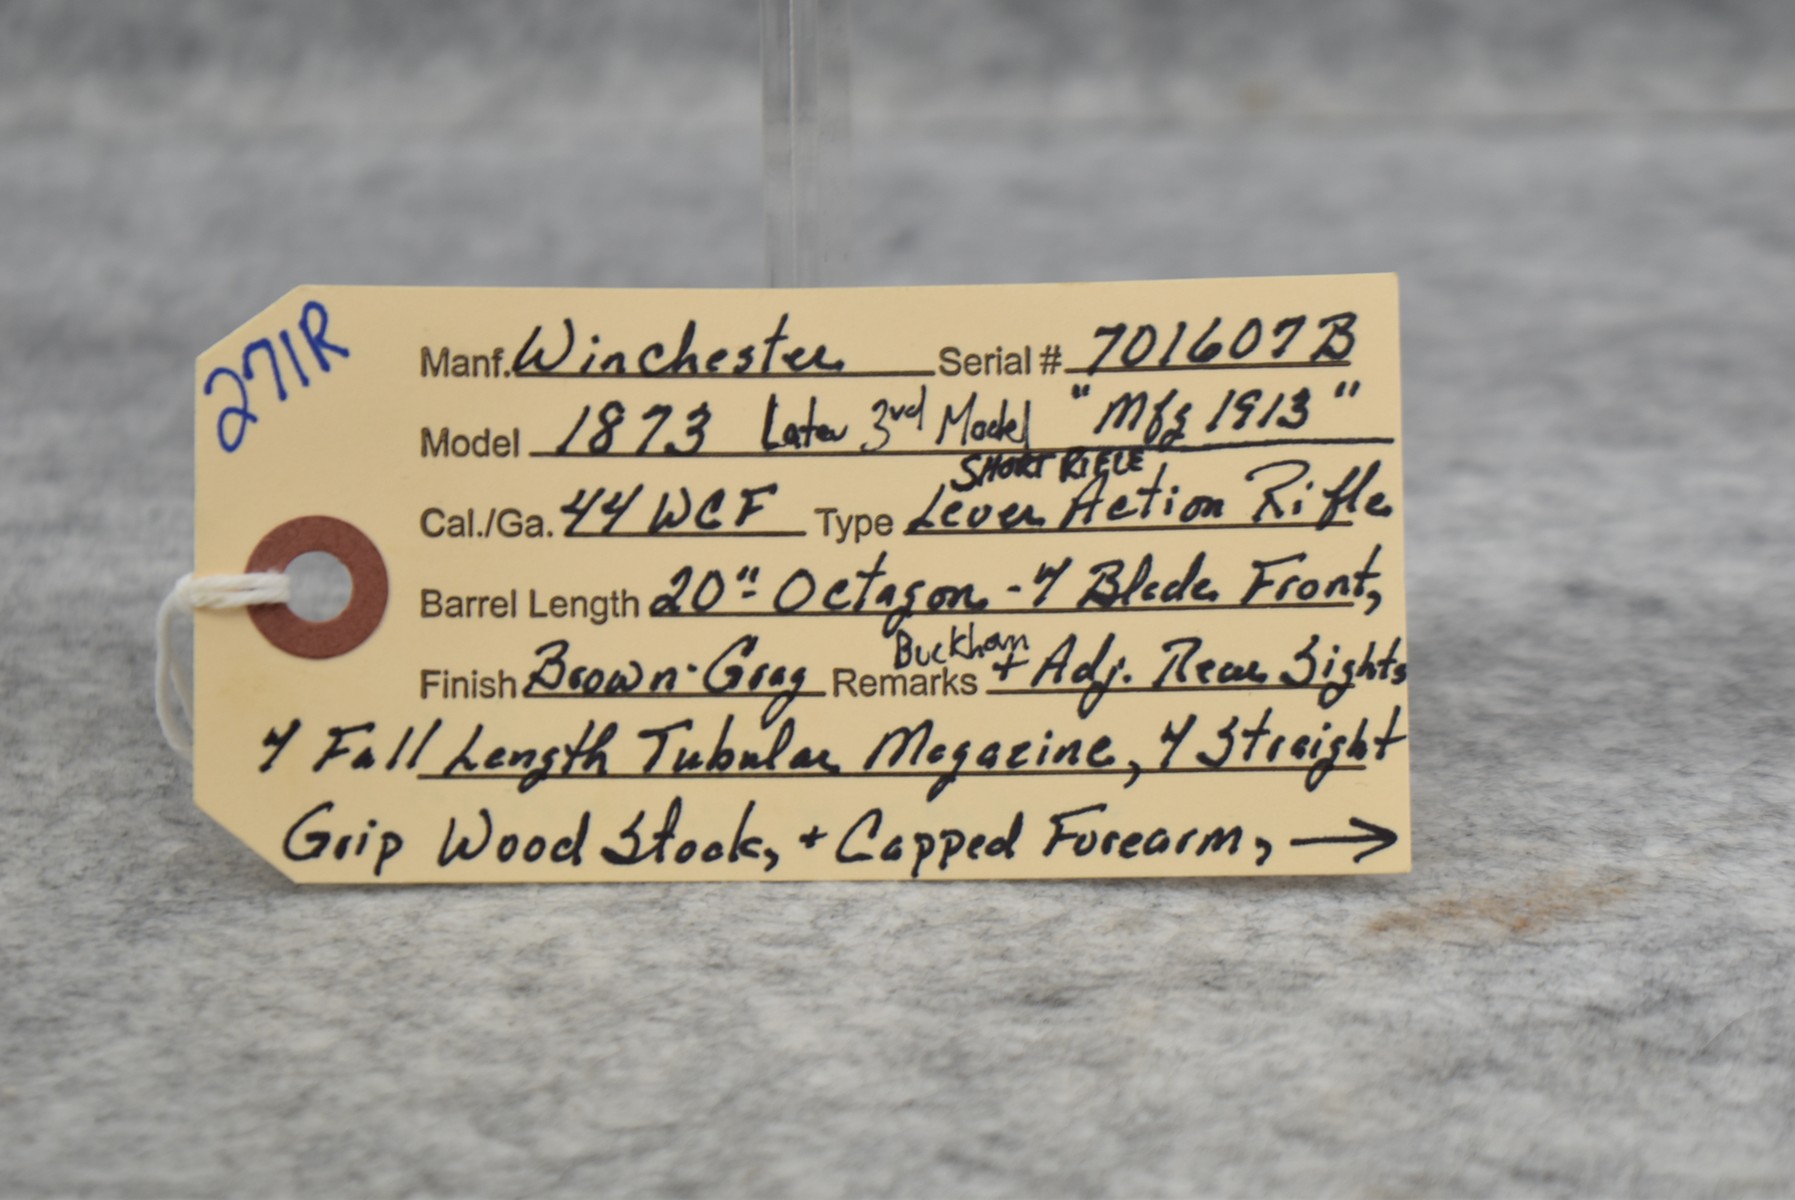 271R
Manf. Winchester Serial # 701607B
Model 1873 Later 3rd Model "Mfg 1913"
SHORT RIFLE
Cal./Ga. 44 WCF Type Lever Action Rifle
Barrel Length 20" Octagon - 4 Blade Front,
Buckhorn
Finish Brown-Gray Remarks + Adj. Rear Sights
4 Full Length Tubular Magazine, 4 Straight
Grip Wood Stock, + Capped Forearm, →